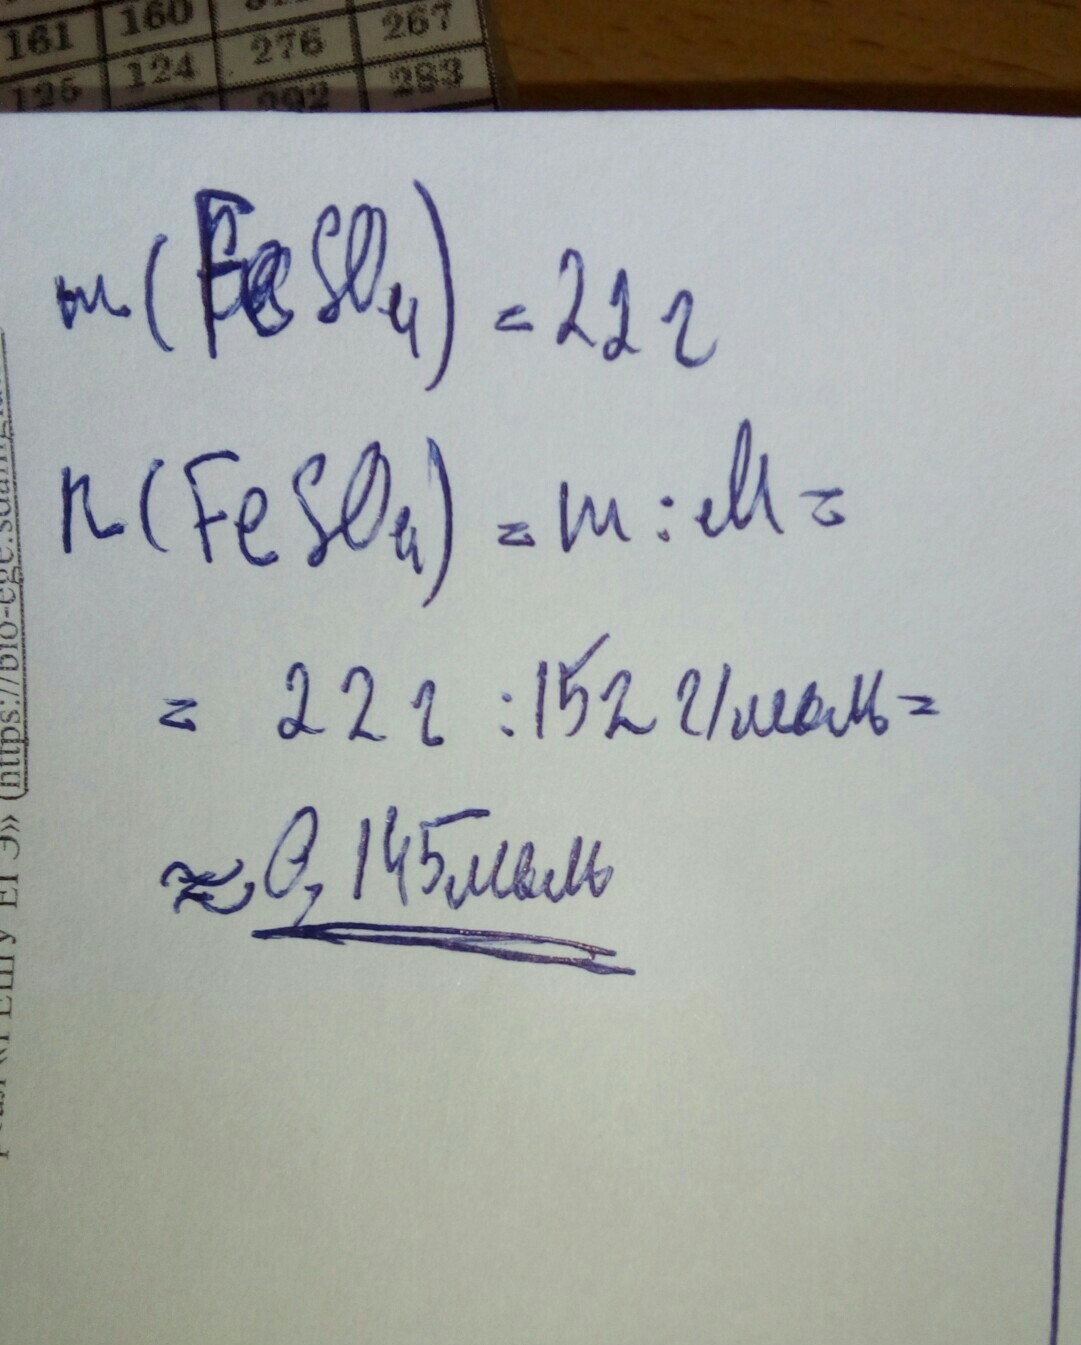 161 160 267
276
125 124 283
292
m(FeSO₄) = 22 г
n(FeSO₄) = m : M =
= 22 г : 152 г/моль =
≈ 0,145моль
ЕГЭ» (https://bio-ege.sdamgia.